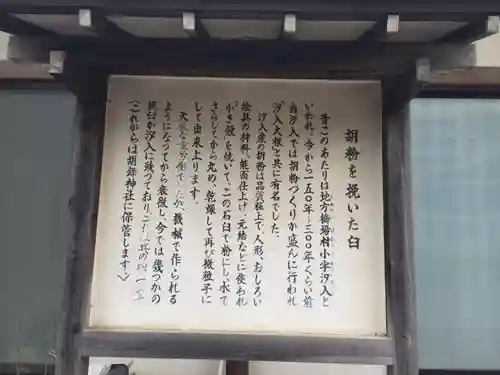 胡粉を挽いた臼
昔このあたりは地方橋場村小字汐入と
いわれ、今から一五〇年〜三〇〇年くらい前
当汐入では胡粉づくりが盛んに行われ
汐入大根と共に有名でした。
汐入産の胡粉は品質極上で、人形、おしろい
絵具の材料、能面仕上げ、元結などに使われ
かき殻を焼いて、この石臼で粉にし、水で
さらしてから丸め、乾燥して再び微粒子に
して出来上ります。
大変な重労働でしたが、機械で作られる
ようになってから衰微し、今では幾つかの
挽臼が汐入に残っており、これは其の
(これからは胡録神社に保管します)